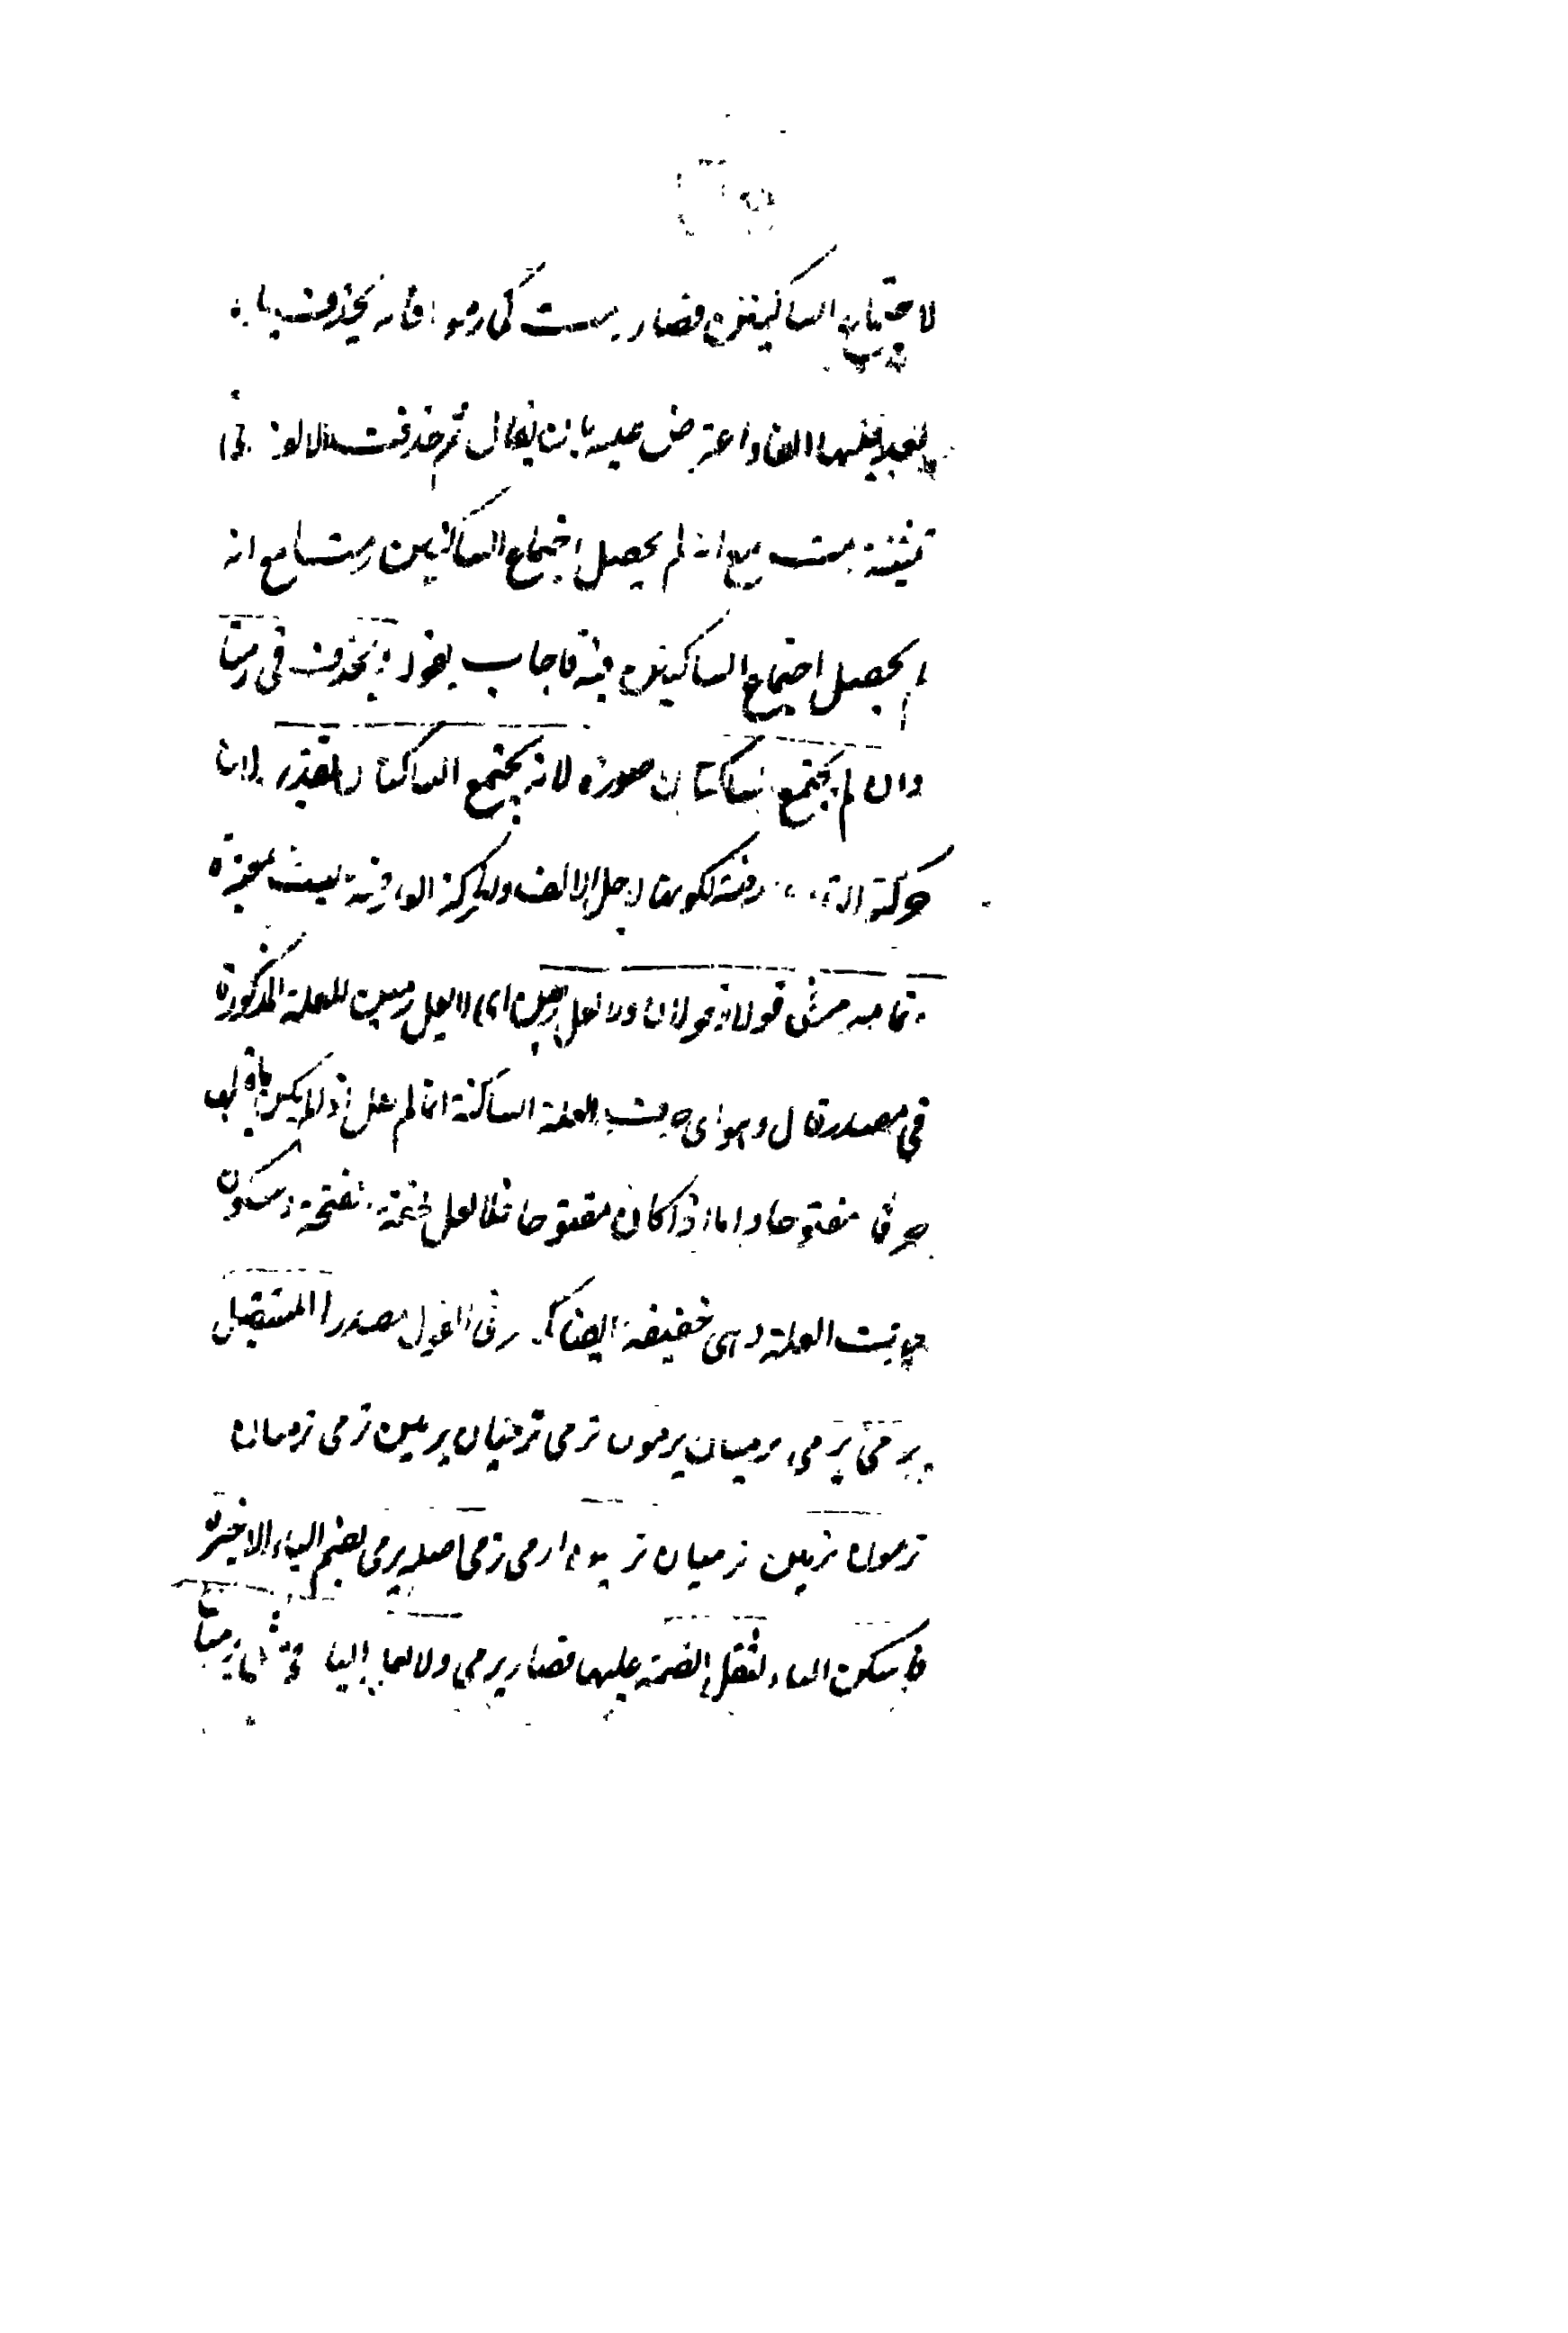 لاجتماع الساكنين فصار رمت كما في رموا فانه يحذف ياءه
بعد قلبها الفا واعترض عليه بان يقال ثم حذفت الالف في
تثنية رمت مع انه لم يحصل اجتماع الساكنين رمتا مع انه
لم يحصل اجتماع الساكنين فيه فاجاب بقوله ويحذف في رمتا
وان لم يجتمع ساكنان صورة لانه يجتمع الساكنان تقديرا لان
حركة التاء لكونها لاجل الالف والحركة العارضة ليست بمعتبرة
تمامه مر في قولا قولان ولا يعل رمين اي لا يعل رمين للعلة المذكورة
في مصدر قال وهو اي حرف العلة الساكنة انما لم يعل اذا لم يكن ما قبلها
حرفا مفتوحا واما اذا كان مفتوحا فلا يعل لخفة الفتحة وسكون
حرف العلة وهي خفيفة ايضا كما مر في القول مصدرا المستقبل
يرمي يرمي يرميان يرمون ترمي ترميان يرمين ترمي ترميان
ترمون ترمين ترميان ترمين ارمي نرمي اصله يرمي بضم الياء الاخيرة
فاسكن الياء لثقل الضمة عليها فصار يرمي ولا تعل الياء في مثل رمينا